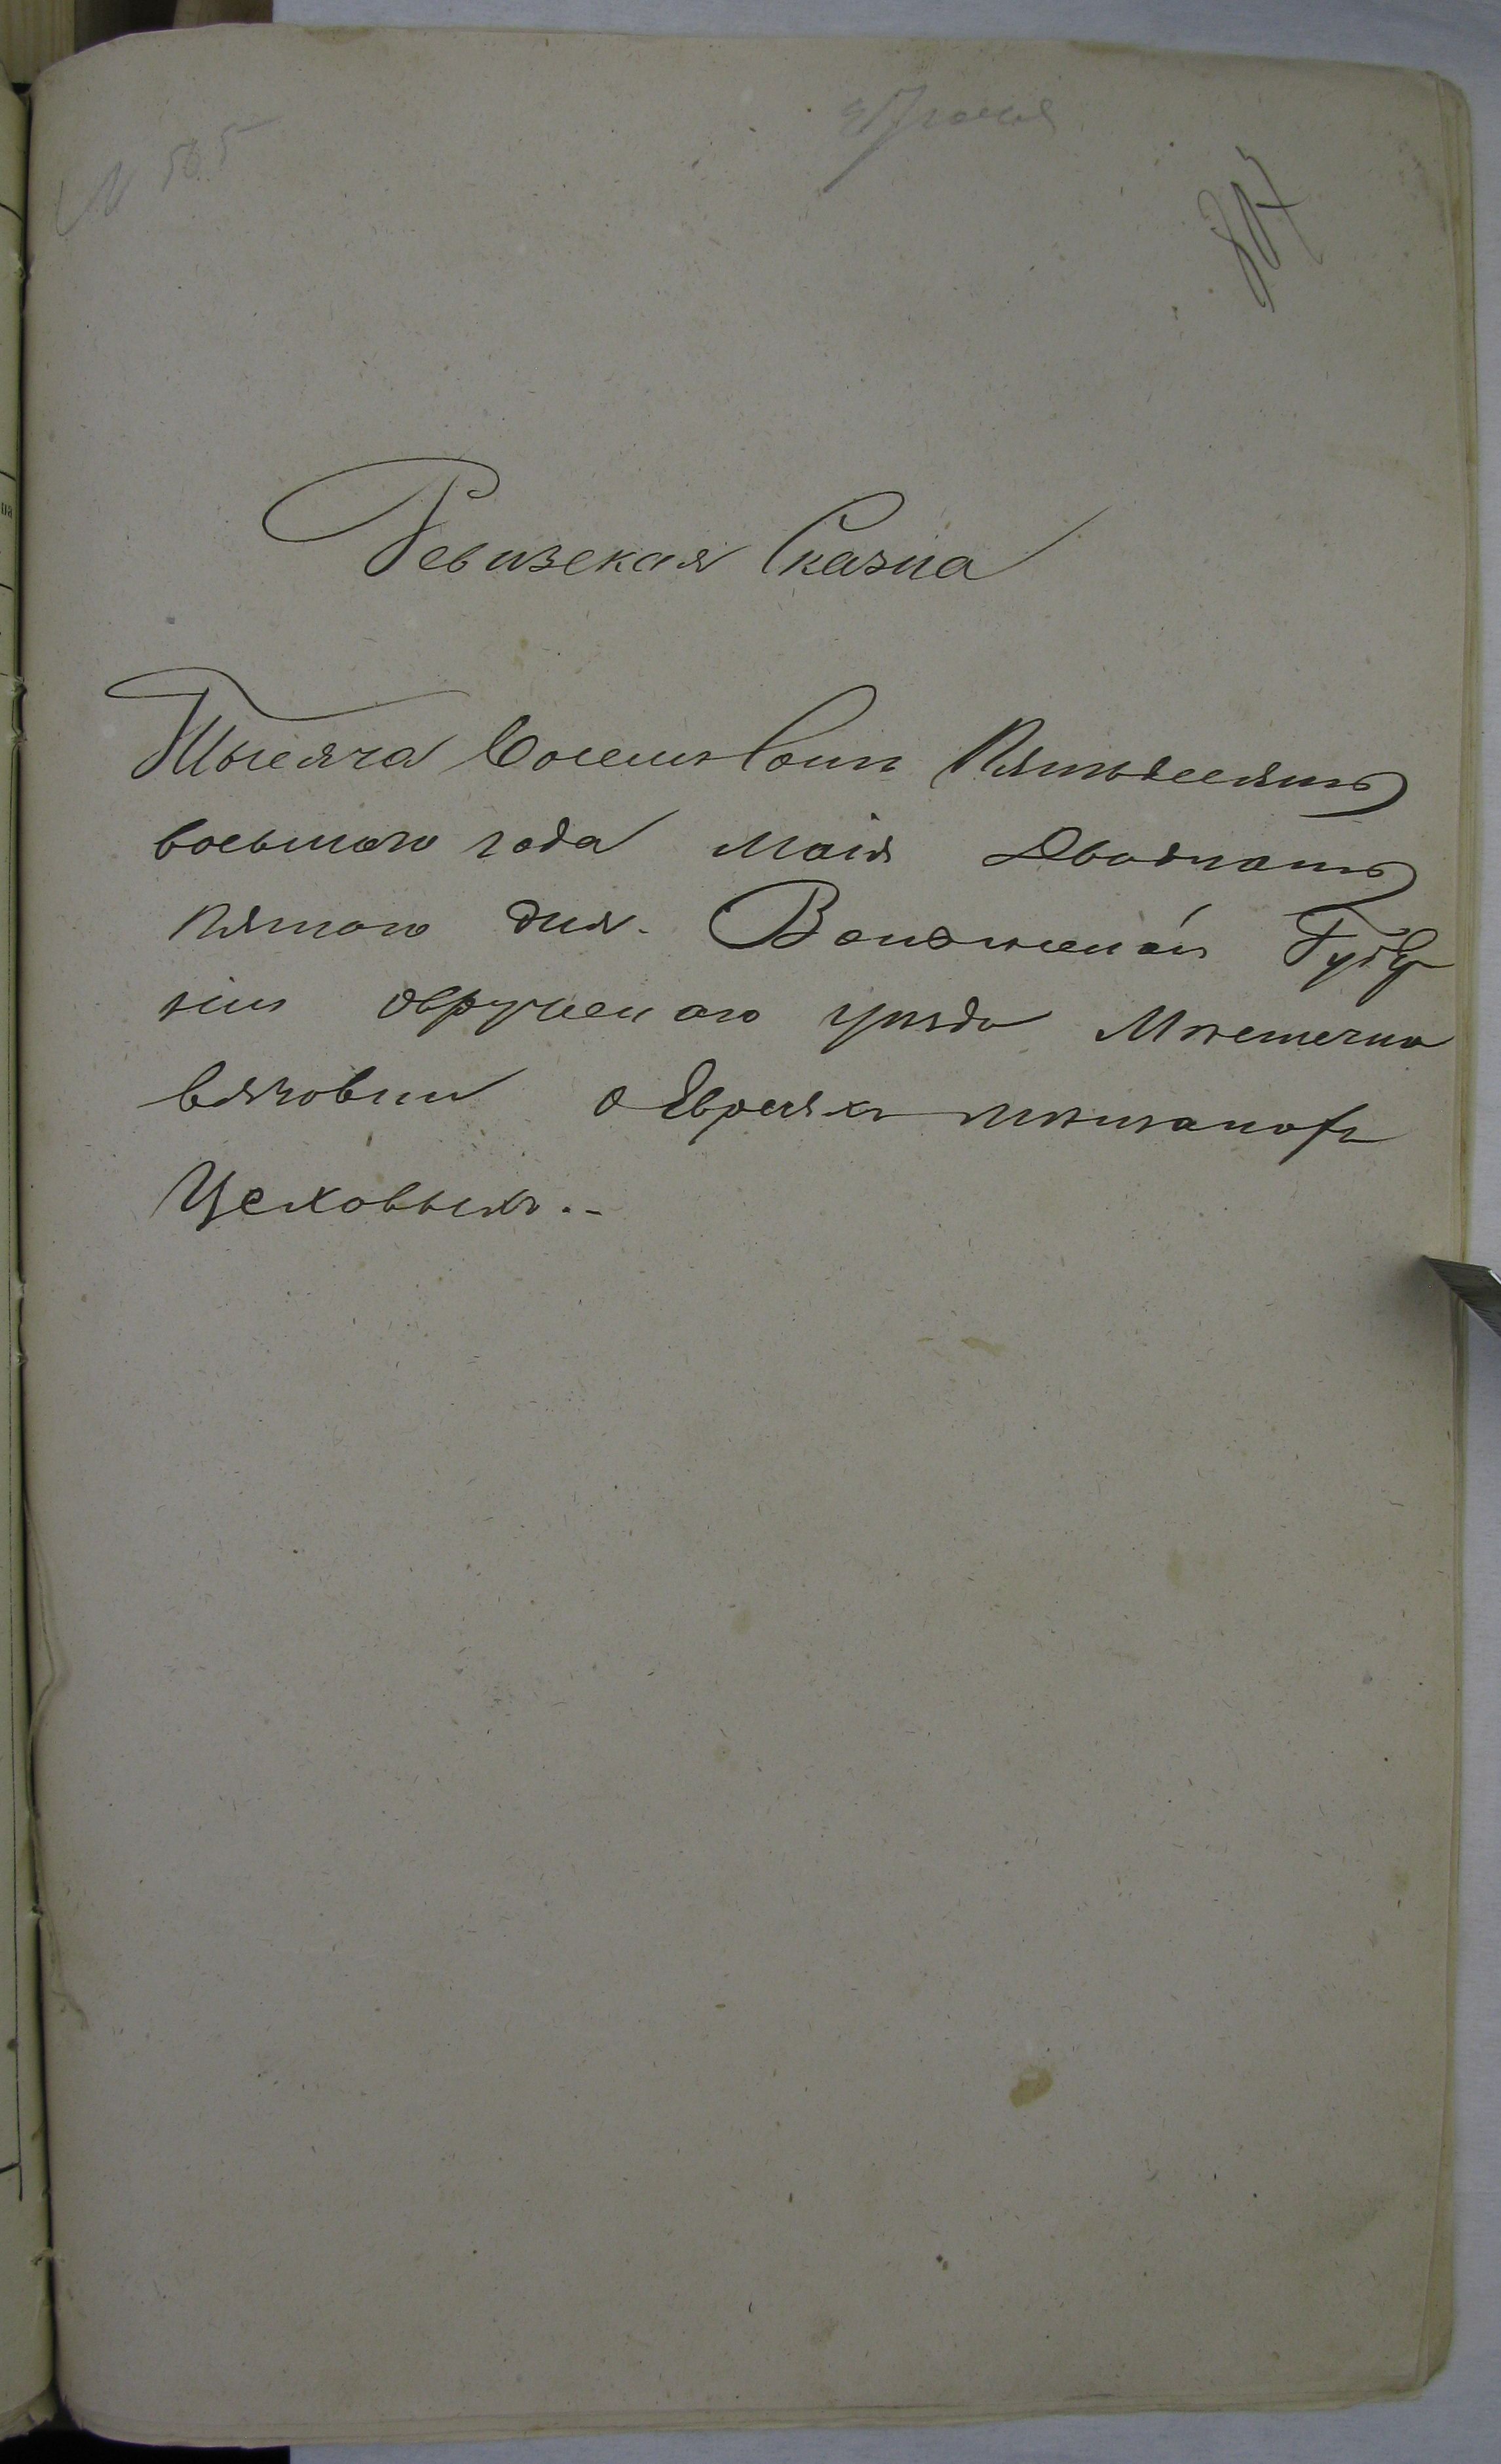 № 505
Ревизская Сказка
Тысяча восемь Сотъ Пятьдесятъ
восьмого года Маія Двадцать
пятого дня. Волынской Губер
ніи овручского уѣзда Мѣстечка
вязовки о Евреяхъ мѣщанахъ
Цеховыхъ..-